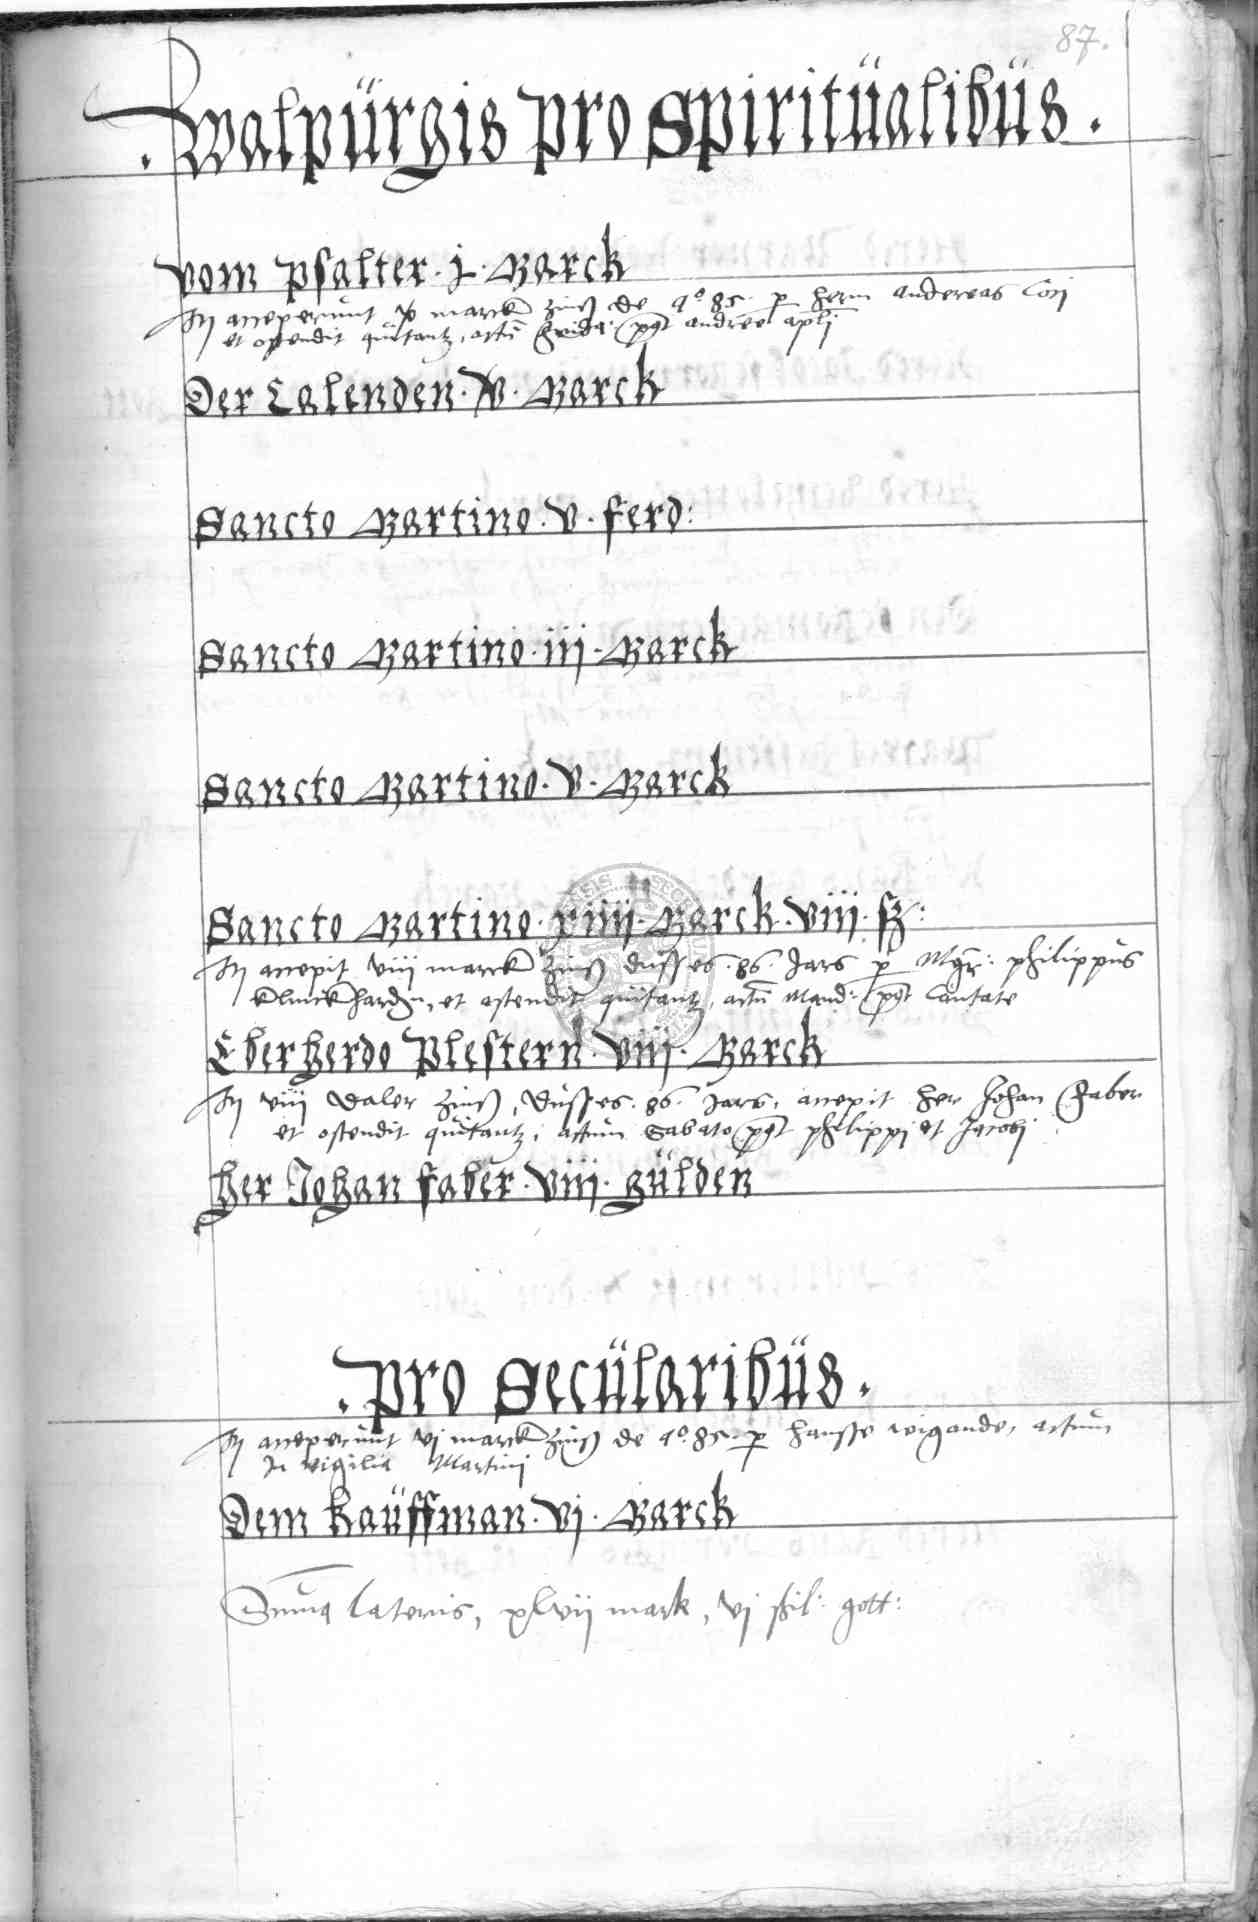 87.
. Walpürgis pro Spiritüalibüs .
vom psalter . j . Marck
acceperunt v marck zinß de ao 85 . p hern andereas Cori
et ostendit quitantz, actū frida: pꝰt andree apłi
Der Calenden . v . Marck
Sancto Martino . v . ferd:
Sancto Martino . iii . Marck
Sancto Martino . v . Marck
Sancto Martino . xiiii . Marck . viii . ß:
accepit viii marck zinß dusses . 86 . Jars p Mgr: philippus
et ostendit quitantz, actū Mand: pꝰt Cantate
Eberherdo Plestern . viii . Marck
viii daler zinß, dusses . 86 . Jars, accepit her Johan Faber
et ostendit quitantz, actum Sabato pꝰt philippi et Jacobi
her Johan faber . viii . gülden
. pro Secülaribüs .
acceperunt vj marck zinß de ao 85 . p hansse wigande, actum
In vigilia Martini
Dem kaüffman . vj . Marck
Suma lateris, xlvii mark, vj ßil: gott: